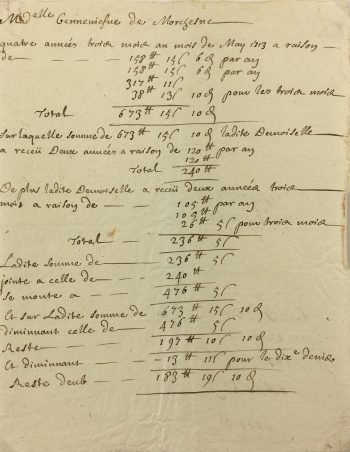 Mad^elle Genneuiefue de Morchesne
quatre années trois mois au mois de May 1713 a raison
de — 158^tt 15ſ 6 d par an
158^tt 15ſ 6 d par an
317^tt 11ſ
38^tt 13ſ 10 d pour les trois mois
Total — 673^tt 15ſ 10 d
Sur laquelle somme de 673^tt 15ſ 10 d ladite Demoiselle
a receü Deux années a raison de 120^tt par an
120^tt
Total 240^tt
De plus ladite Demoiselle a receü deux années trois
mois a raison de — 105^tt par an
105^tt
26^tt 5ſ pour trois mois
Total — 236^tt 5ſ
Ladite somme de — 236^tt 5ſ
jointe a celle de — 240^tt
se monte a — 476^tt 5ſ
Et sur Ladite somme de 673^tt 15ſ 10 d
diminuant celle de — 476^tt 5ſ
Reste — 197^tt 10ſ 10 d
Et diminuant — 13^tt 11ſ pour le dix^e denier
Reste deub — 183^tt 19ſ 10 d